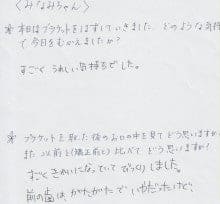 〈みなみちゃん〉
※ 本日はブラケットをはずしていきました。どのような気持
で今日をむかえましたか?
すごく うれしい気持ちでした。
※ ブラケットを取った後のお口の中を見てどう思いますか
また 以前と(矯正前と) 比べて どう思いますか?
すごくきれいになっていて びっくりしました。
前の歯は、がたがたで いやだったけど、